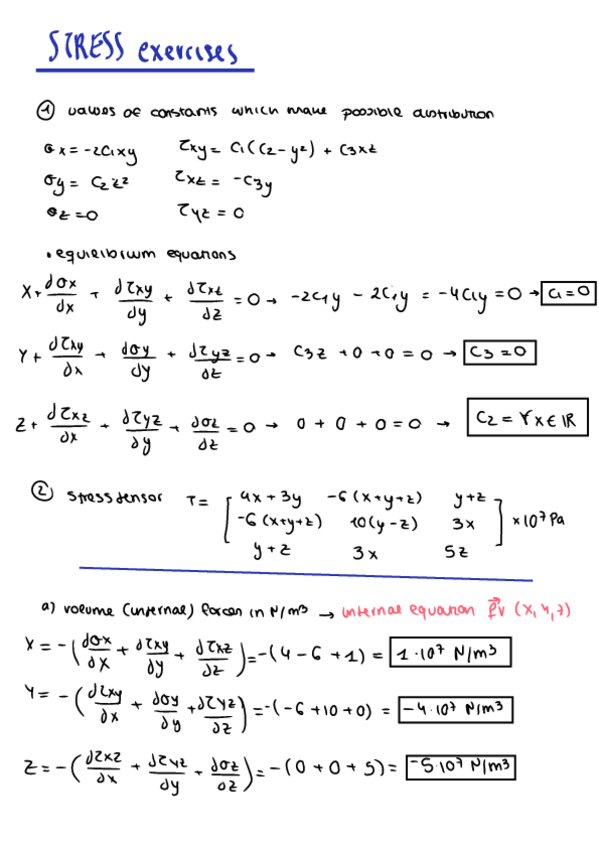 STRESS exercises
① values of constants which make possible distribution
σx = -2C₁xy   τxy = C₁(C₂ - y²) + C₃xz
σy = C₂z²   τxz = -C₃y
σz = 0   τyz = 0
• equilibrium equations
X + dσx/dx + dτxy/dy + dτxz/dz = 0 → -2C₁y - 2C₁y = -4C₁y = 0 → C₁ = 0
Y + dτxy/dx + dσy/dy + dτyz/dz = 0 → C₃z + 0 + 0 = 0 → C₃ = 0
Z + dτxz/dx + dτyz/dy + dσz/dz = 0 → 0 + 0 + 0 = 0 → C₂ = ∀x ∈ ℝ
② Stress tensor T = [ 4x + 3y   -6(x+y+z)   y+z
-6(x+y+z)   10(y-z)   3x
y+z   3x   5z ] ×10⁷ Pa
a) volume (internal) forces in N/m³ → internal equation f⃗v (x,y,z)
X = -(dσx/dx + dτxy/dy + dτxz/dz) = -(4 - 6 + 1) = 1·10⁷ N/m³
Y = -(dτxy/dx + dσy/dy + dτyz/dz) = -(-6 + 10 + 0) = -4·10⁷ N/m³
Z = -(dτxz/dx + dτyz/dy + dσz/dz) = -(0 + 0 + 5) = -5·10⁷ N/m³